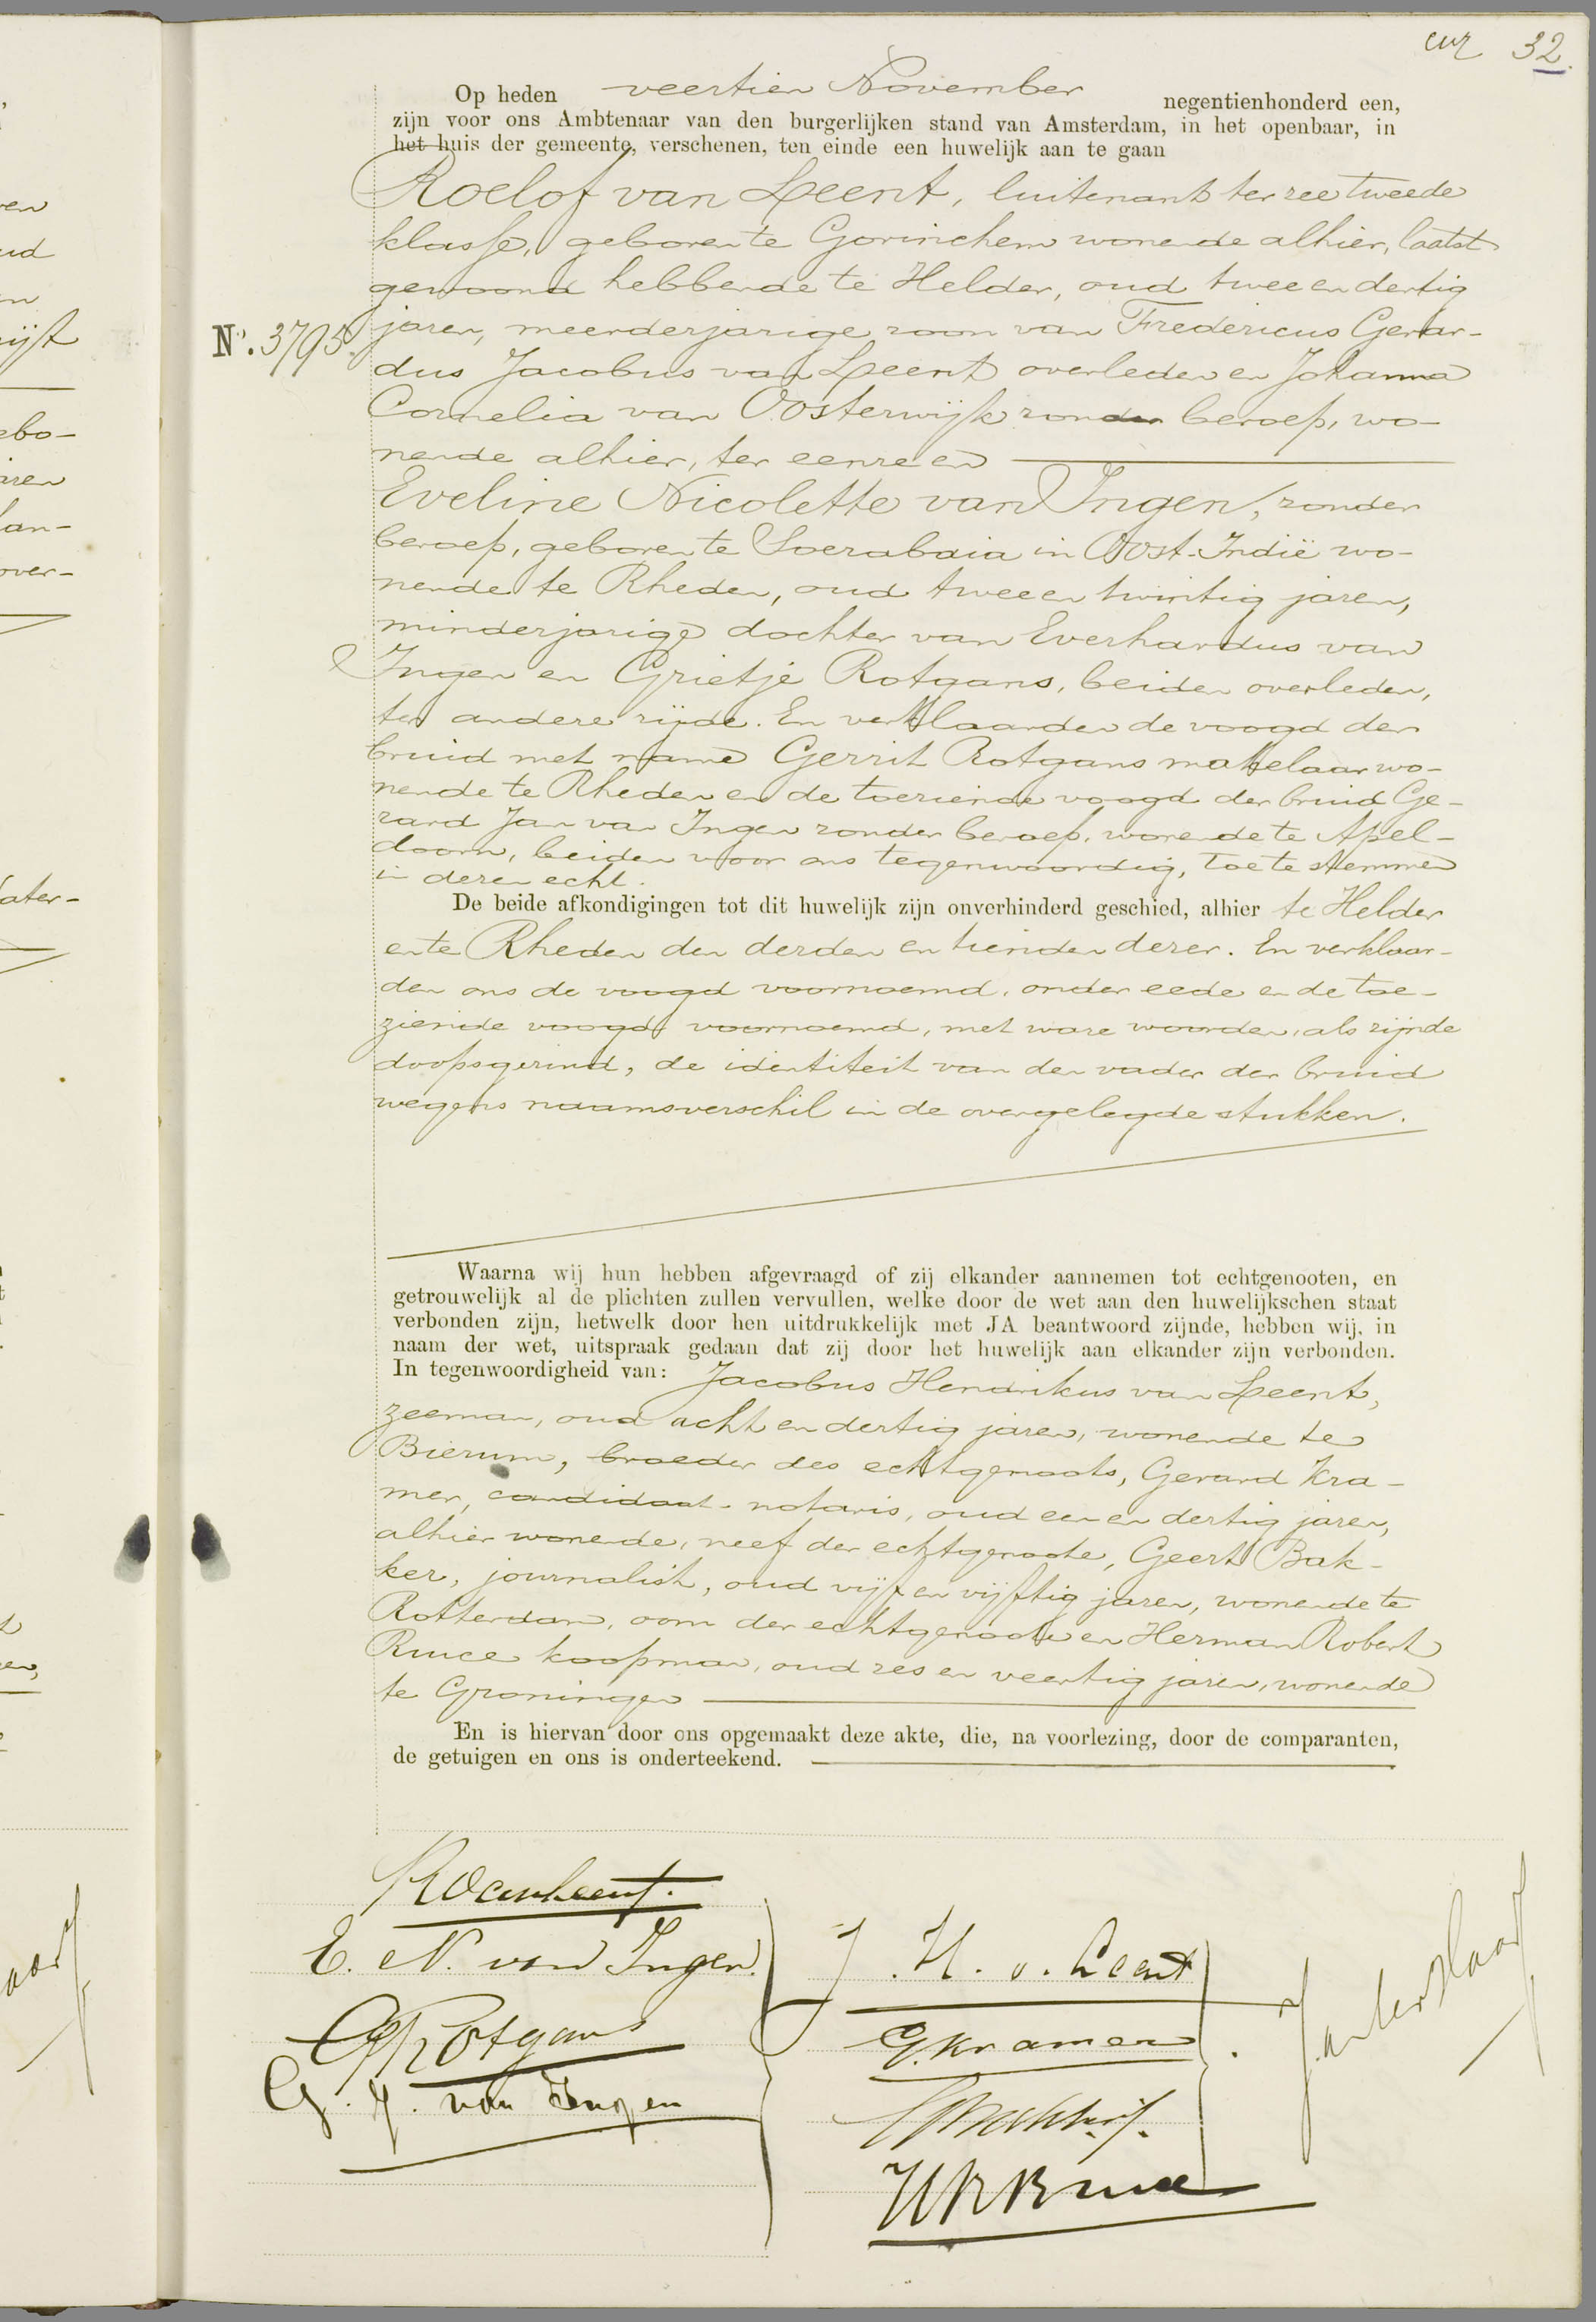 cur 32.
Op heden veertien November negentienhonderd een,
zijn voor ons Ambtenaar van den burgerlijken stand van Amsterdam, in het openbaar, in
het huis der gemeente, verschenen, ten einde een huwelijk aan te gaan
Roelof van Leent, luitenant ter zee tweede
klasse, geboren te Gorinchem wonende alhier, laatst
gewoond hebbende te Helder, oud twee en dertig
No. 3795. jaren, meerderjarige zoon van Fredericus Gerar-
dus Jacobus van Leent overleden en Johanna
Cornelia van Oosterwijk zonder beroep, wo-
nende alhier, ter eenre en
Eveline Nicolette van Ingen, zonder
beroep, geboren te Soerabaia in Oost-Indië wo-
nende te Rheden, oud twee en twintig jaren,
minderjarige dochter van Everhardus van
Ingen en Grietje Rotgans, beiden overleden,
ter andere zijde. En verklaarden de voogd der
bruid met name Gerrit Rotgans makelaar wo-
nende te Rheden en de toeziende voogd der bruid Ge-
rard Jan van Ingen zonder beroep, wonende te Apel-
doorn, beiden voor ons tegenwoordig, toe te stemmen
in dezen echt.
De beide afkondigingen tot dit huwelijk zijn onverhinderd geschied, alhier te Helder
en te Rheden den derden en tienden dezer. En verklaar-
den ons de voogd voornoemd, onder eede en de toe-
ziende voogd voornoemd, met ware woorden, als zijnde
doopsgezind, de identiteit van den vader der bruid
wegens naamsverschil in de overgelegde stukken.
Waarna wij hun hebben afgevraagd of zij elkander aannemen tot echtgenooten, en
getrouwelijk al de plichten zullen vervullen, welke door de wet aan den huwelijkschen staat
verbonden zijn, hetwelk door hen uitdrukkelijk met JA beantwoord zijnde, hebben wij, in
naam der wet, uitspraak gedaan dat zij door het huwelijk aan elkander zijn verbonden.
In tegenwoordigheid van: Jacobus Hendrikus van Leent,
zeeman, oud acht en dertig jaren, wonende te
Bierum, broeder des echtgenoots, Gerard Kra-
mer, candidaat-notaris, oud een en dertig jaren,
alhier wonende, neef der echtgenoote, Geert Bak-
ker, journalist, oud vijf en vijftig jaren, wonende te
Rotterdam, oom der echtgenoote en Herman Robert
Ruuce koopman, oud zes en veertig jaren, wonende
te Groningen
En is hiervan door ons opgemaakt deze akte, die, na voorlezing, door de comparanten,
de getuigen en ons is onderteekend.
R van Leent.
E. N. van Ingen.
G Rotgans
G. J. van Ingen
J. H. v. Leent
G. Kramer